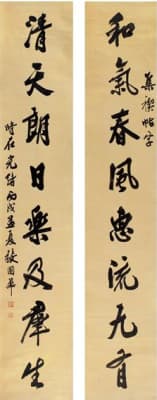 集禊帖字
和氣春風惠流九有
清天朗日樂及羣生
時在光緒丙戌孟夏張國華